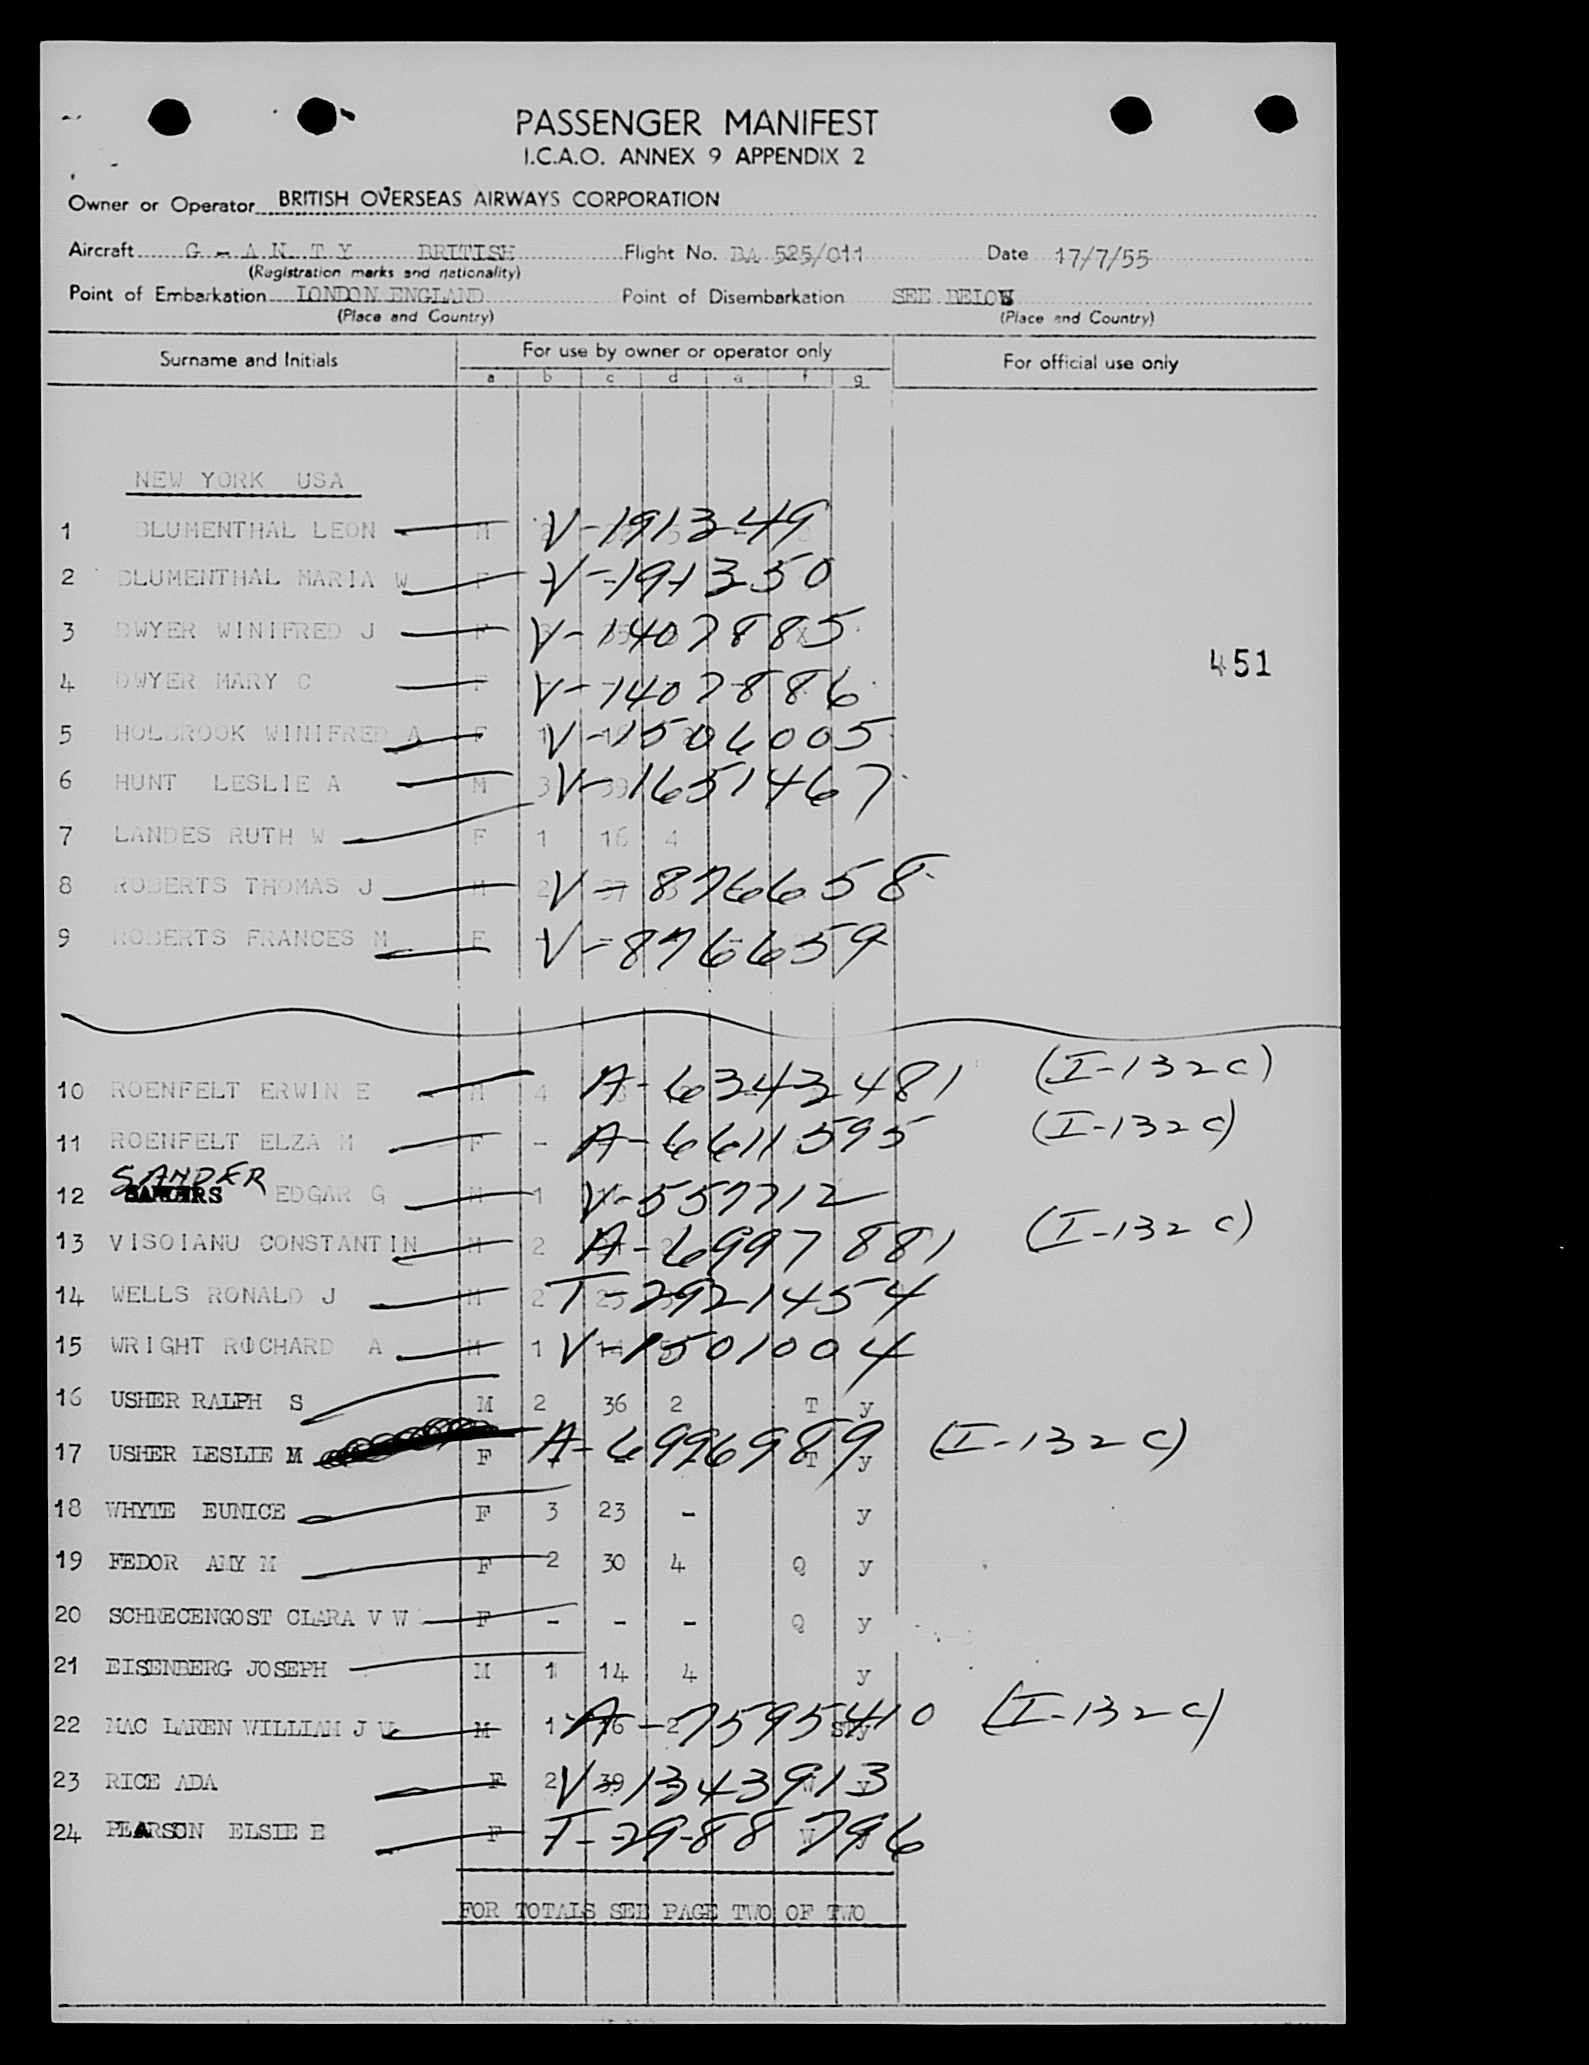 PASSENGER MANIFEST
I.C.A.O. ANNEX 9 APPENDIX 2
Owner or Operator BRITISH OVERSEAS AIRWAYS CORPORATION
Aircraft G - A N T Y BRITISH Flight No. BA 525/011 Date 17/7/55
(Registration marks and nationality)
Point of Embarkation LONDON ENGLAND Point of Disembarkation SEE BELOW
(Place and Country) (Place and Country)
Surname and Initials For use by owner or operator only For official use only
a b c d e f g
NEW YORK USA
1 BLUMENTHAL LEON M V-1913249
2 BLUMENTHAL MARIA W F V-1913350
3 DWYER WINIFRED J F V-1407885
451
4 DWYER MARY C F V-1407886
5 HOLBROOK WINIFRED A F 1 V-1506005
6 HUNT LESLIE A M 3 V-1651467
7 LANDES RUTH W F 1 16 4
8 ROBERTS THOMAS J M 2 V-876658
9 ROBERTS FRANCES M F V-876659
10 ROENFELT ERWIN E M 4 A-6343481 (I-132C)
11 ROENFELT ELZA M F - A-6611595 (I-132C)
12 SANDER EDGAR G M 1 V-557712
13 VISOIANU CONSTANTIN M 2 A-6997881 (I-132C)
14 WELLS RONALD J M 2 T-2921454
15 WRIGHT RICHARD A M 1 V-1501004
16 USHER RALPH S M 2 36 2 T y
17 USHER LESLIE M F A-6996989 T y (I-132C)
18 WHYTE EUNICE F 3 23 - y
19 FEDOR AMY M F 2 30 4 Q y
20 SCHRECENGOST CLARA V W F - - - Q y
21 EISENBERG JOSEPH M 1 14 4 y
22 MAC LAREN WILLIAM J W M 1 16 2 A-7595410 (I-132C)
23 RICE ADA F 2 39 V-1343913 W y
24 PEARSON ELSIE E F T-2988796 W
FOR TOTALS SEE PAGE TWO OF TWO